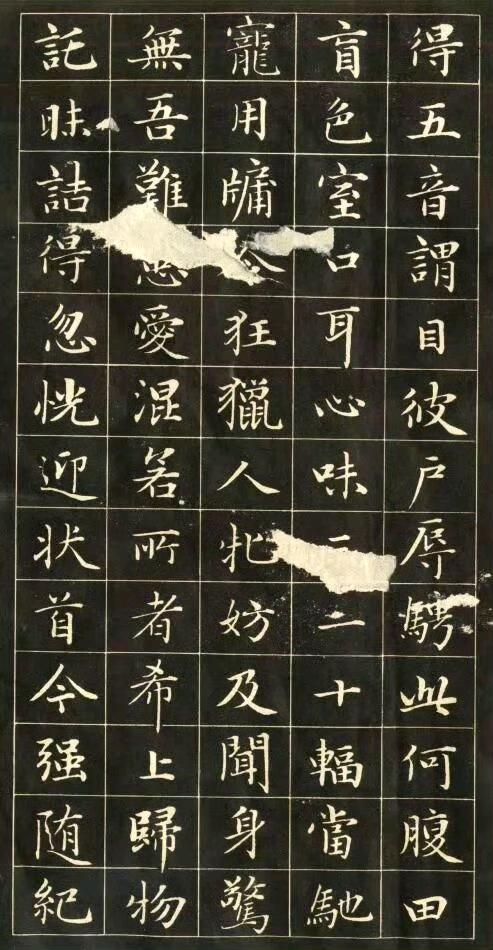 得五音謂目彼户辱騁此何腹田
盲色室口耳心味二十輻當馳
寵用牖狂獵人牝妨及聞身驚
無吾難愛混若所者希上歸物
託昧詰得忽恍迎状首今强随紀